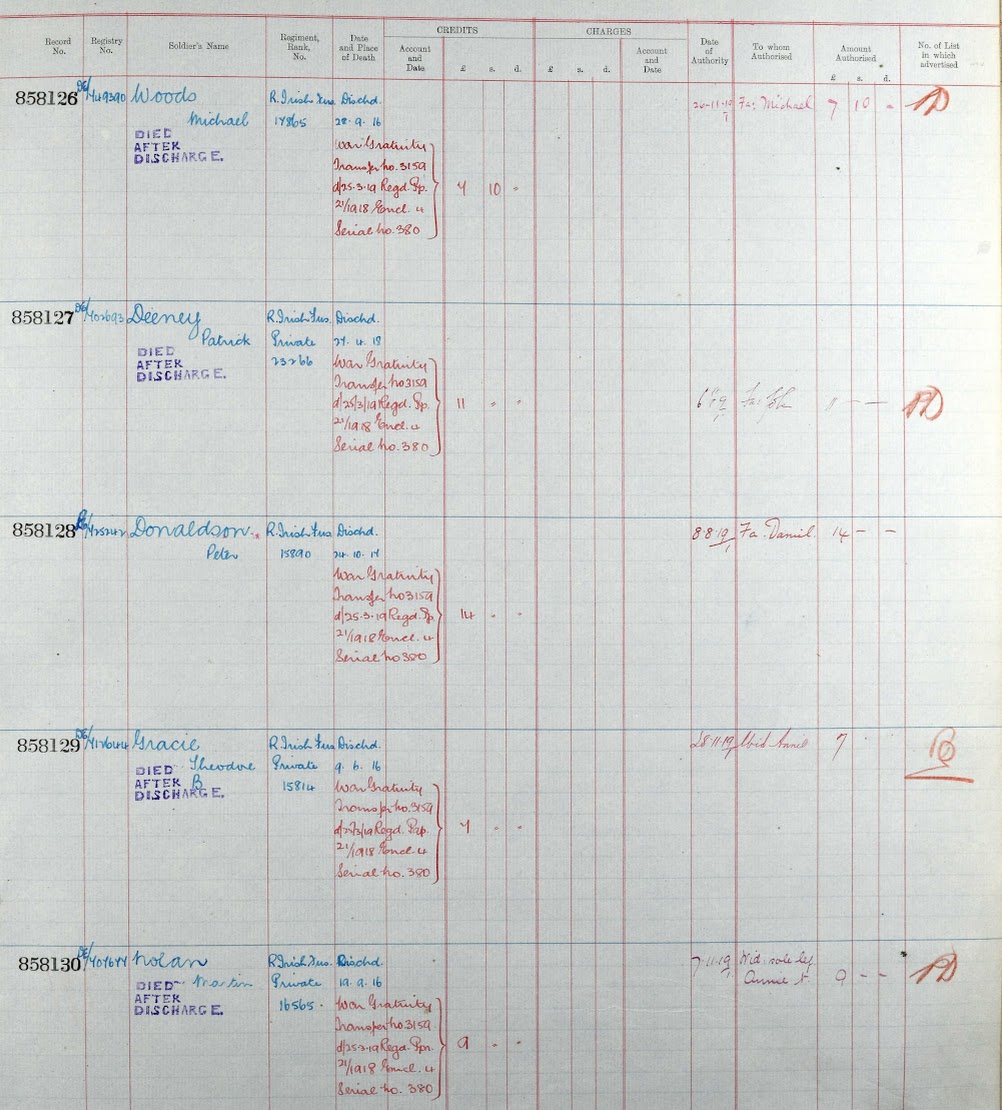 Record No.
Registry No.
Soldier's Name
Regiment, Rank, No.
Date and Place of Death
CREDITS
Account and Date
£ s. d.
CHARGES
£ s. d.
Account and Date
Date of Authority
To whom Authorised
Amount Authorised
£ s. d.
No. of List in which advertised
858126 Woods R. Irish Fus Dischd. Fa: Michael 7 10 -
Michael 17865 28.9.16
DIED
AFTER
DISCHARGE.
War Gratuity
Transfer no. 3159
d/25.3.19 Regd. Pp. 7 10 -
21/1918 Encl. 4
Serial no. 380
858127 Deeney R. Irish Fus. Dischd.
Patrick Private
DIED
AFTER
DISCHARGE.
23266
War Gratuity
Transfer no 3159
d/25/3/19 Regd. Pp. 11 - -
21/1918 Encl. 4
Serial no. 380
Fa: John 11 - -
858128 Donaldson. R. Irish Fus Dischd. 8.8.19 Fa. Daniel. 14 - -
Peter 15890 24.10.17
War Gratuity
Transfer no 3159
d/25.3.19 Regd. Pp. 14 - -
21/1918 Encl. 4
Serial no 380
858129 Gracie R. Irish Fus Dischd. 28.11.19 Wid 7
Theodore Private 9.6.16
B 15814
DIED
AFTER
DISCHARGE.
War Gratuity
Transfer no. 3159
Regd. Pap. 7 - -
21/1918 Encl. 4
Serial no. 380
858130 Nolan R. Irish Fus. Dischd. 7.11.19 Wid. sole leg
Martin Private 19.9.16 Annie 9 - -
DIED
AFTER
DISCHARGE.
16565.
War Gratuity
Transfer no. 3159
d/25.3.19 Regd. Ppr. 9 - -
21/1918 Encl. 4
Serial no. 380